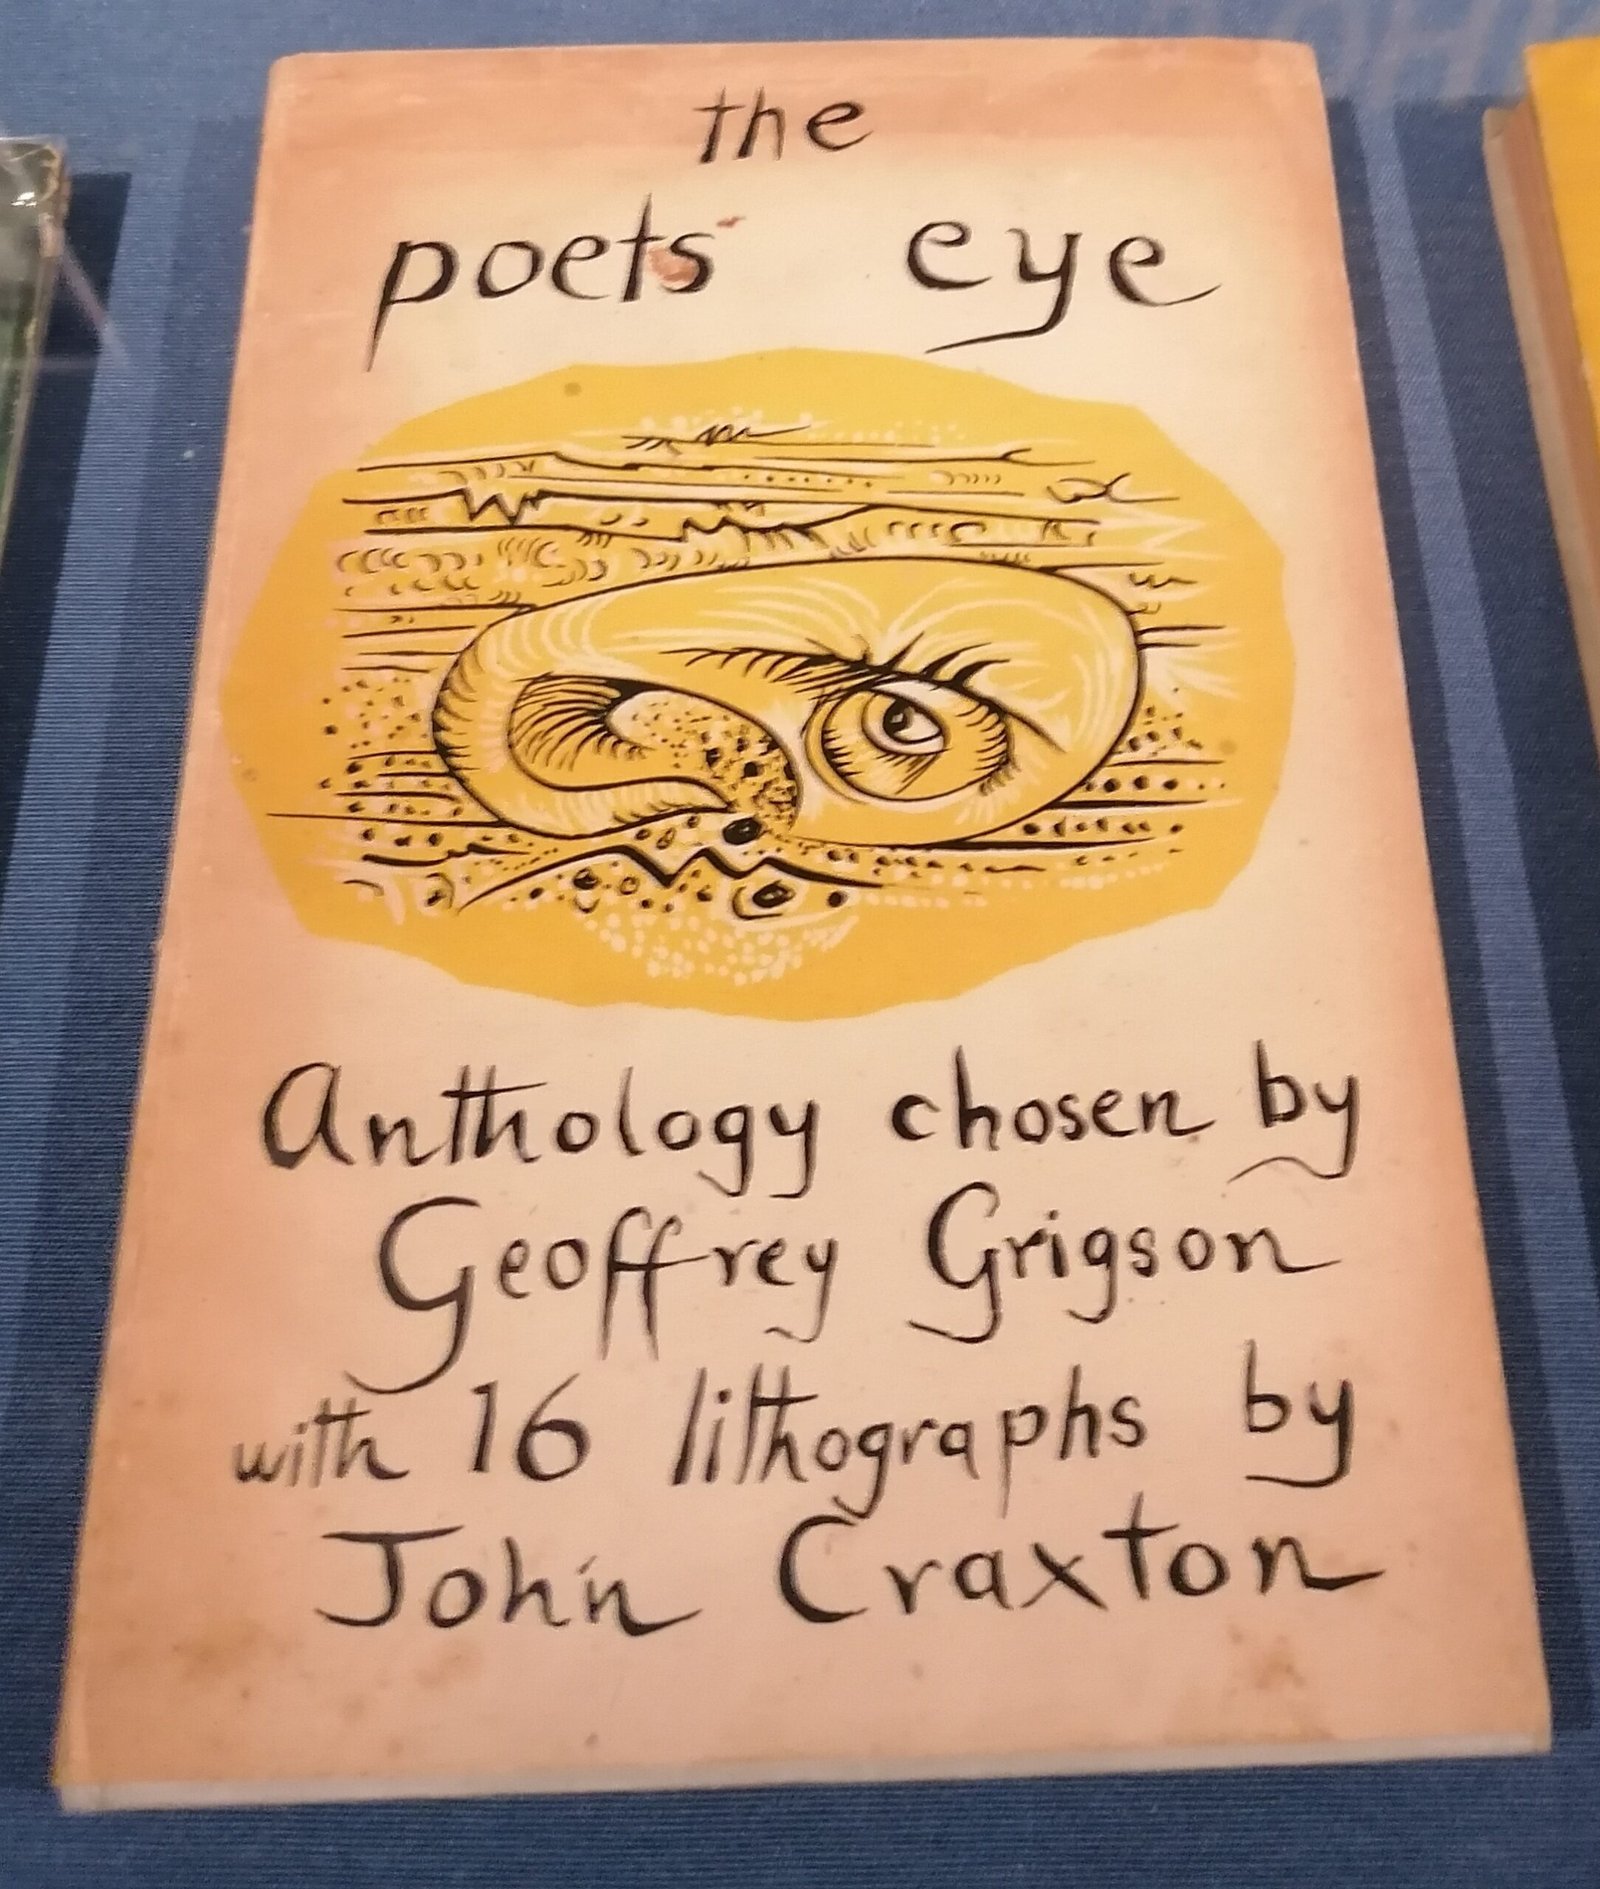 the
poets eye
Anthology chosen by
Geoffrey Grigson
with 16 lithographs by
John Craxton